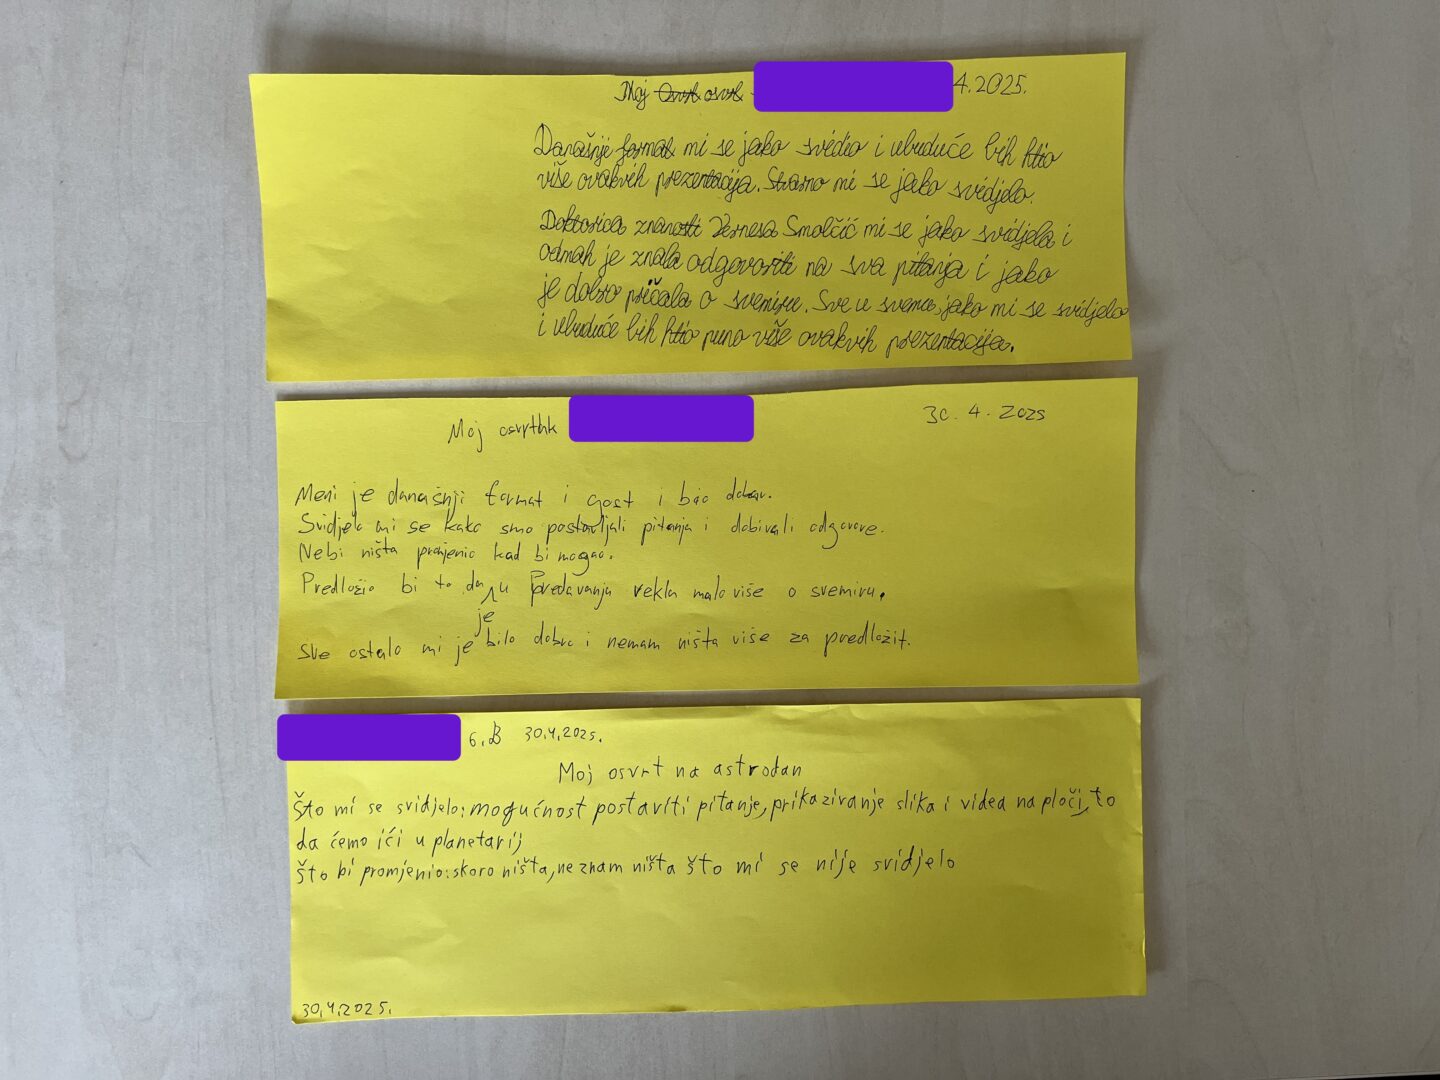 Moj osvrt 4.2025.
Današnje format mi se jako svédio i ubuduće bih htio
više ovakvih prezentacija. Stvarno mi se jako svidjelo.
Doktorica znanosti Vernesa Smolčić mi se jako svidjela i
odmah je znala odgovoriti na sva pitanja i jako
je dobro pričala o svemiru. Sve u svemu, jako mi se svidjelo
i ubuduće bih htio puno više ovakvih prezentacija.
Moj 30. 4. 2025
Meni je današnji format i gost i bio dobar.
Svidjelo mi se kako smo postavljali pitanja i dobivali odgovore.
Nebi ništa promjenio kad bi mogao.
Predložio bi to da je u Predavanju rekla malo više o svemiru.
Sve ostalo mi je bilo dobro i nemam ništa više za predložit.
6.B 30.4.2025.
Moj osvrt na astrodan
Što mi se svidjelo: mogućnost postaviti pitanje, prikazivanje slika i videa na ploči, to
da ćemo ići u planetarij
Što bi promjenio: skoro ništa, ne znam ništa što mi se nije svidjelo
30.4.2025.